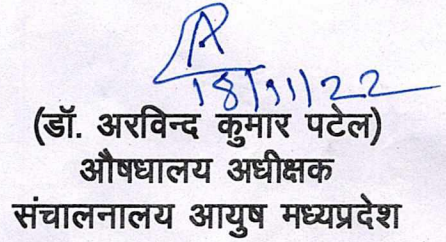 18/11/22
(डॉ. अरविन्द कुमार पटेल)
औषधालय अधीक्षक
संचालनालय आयुष मध्यप्रदेश